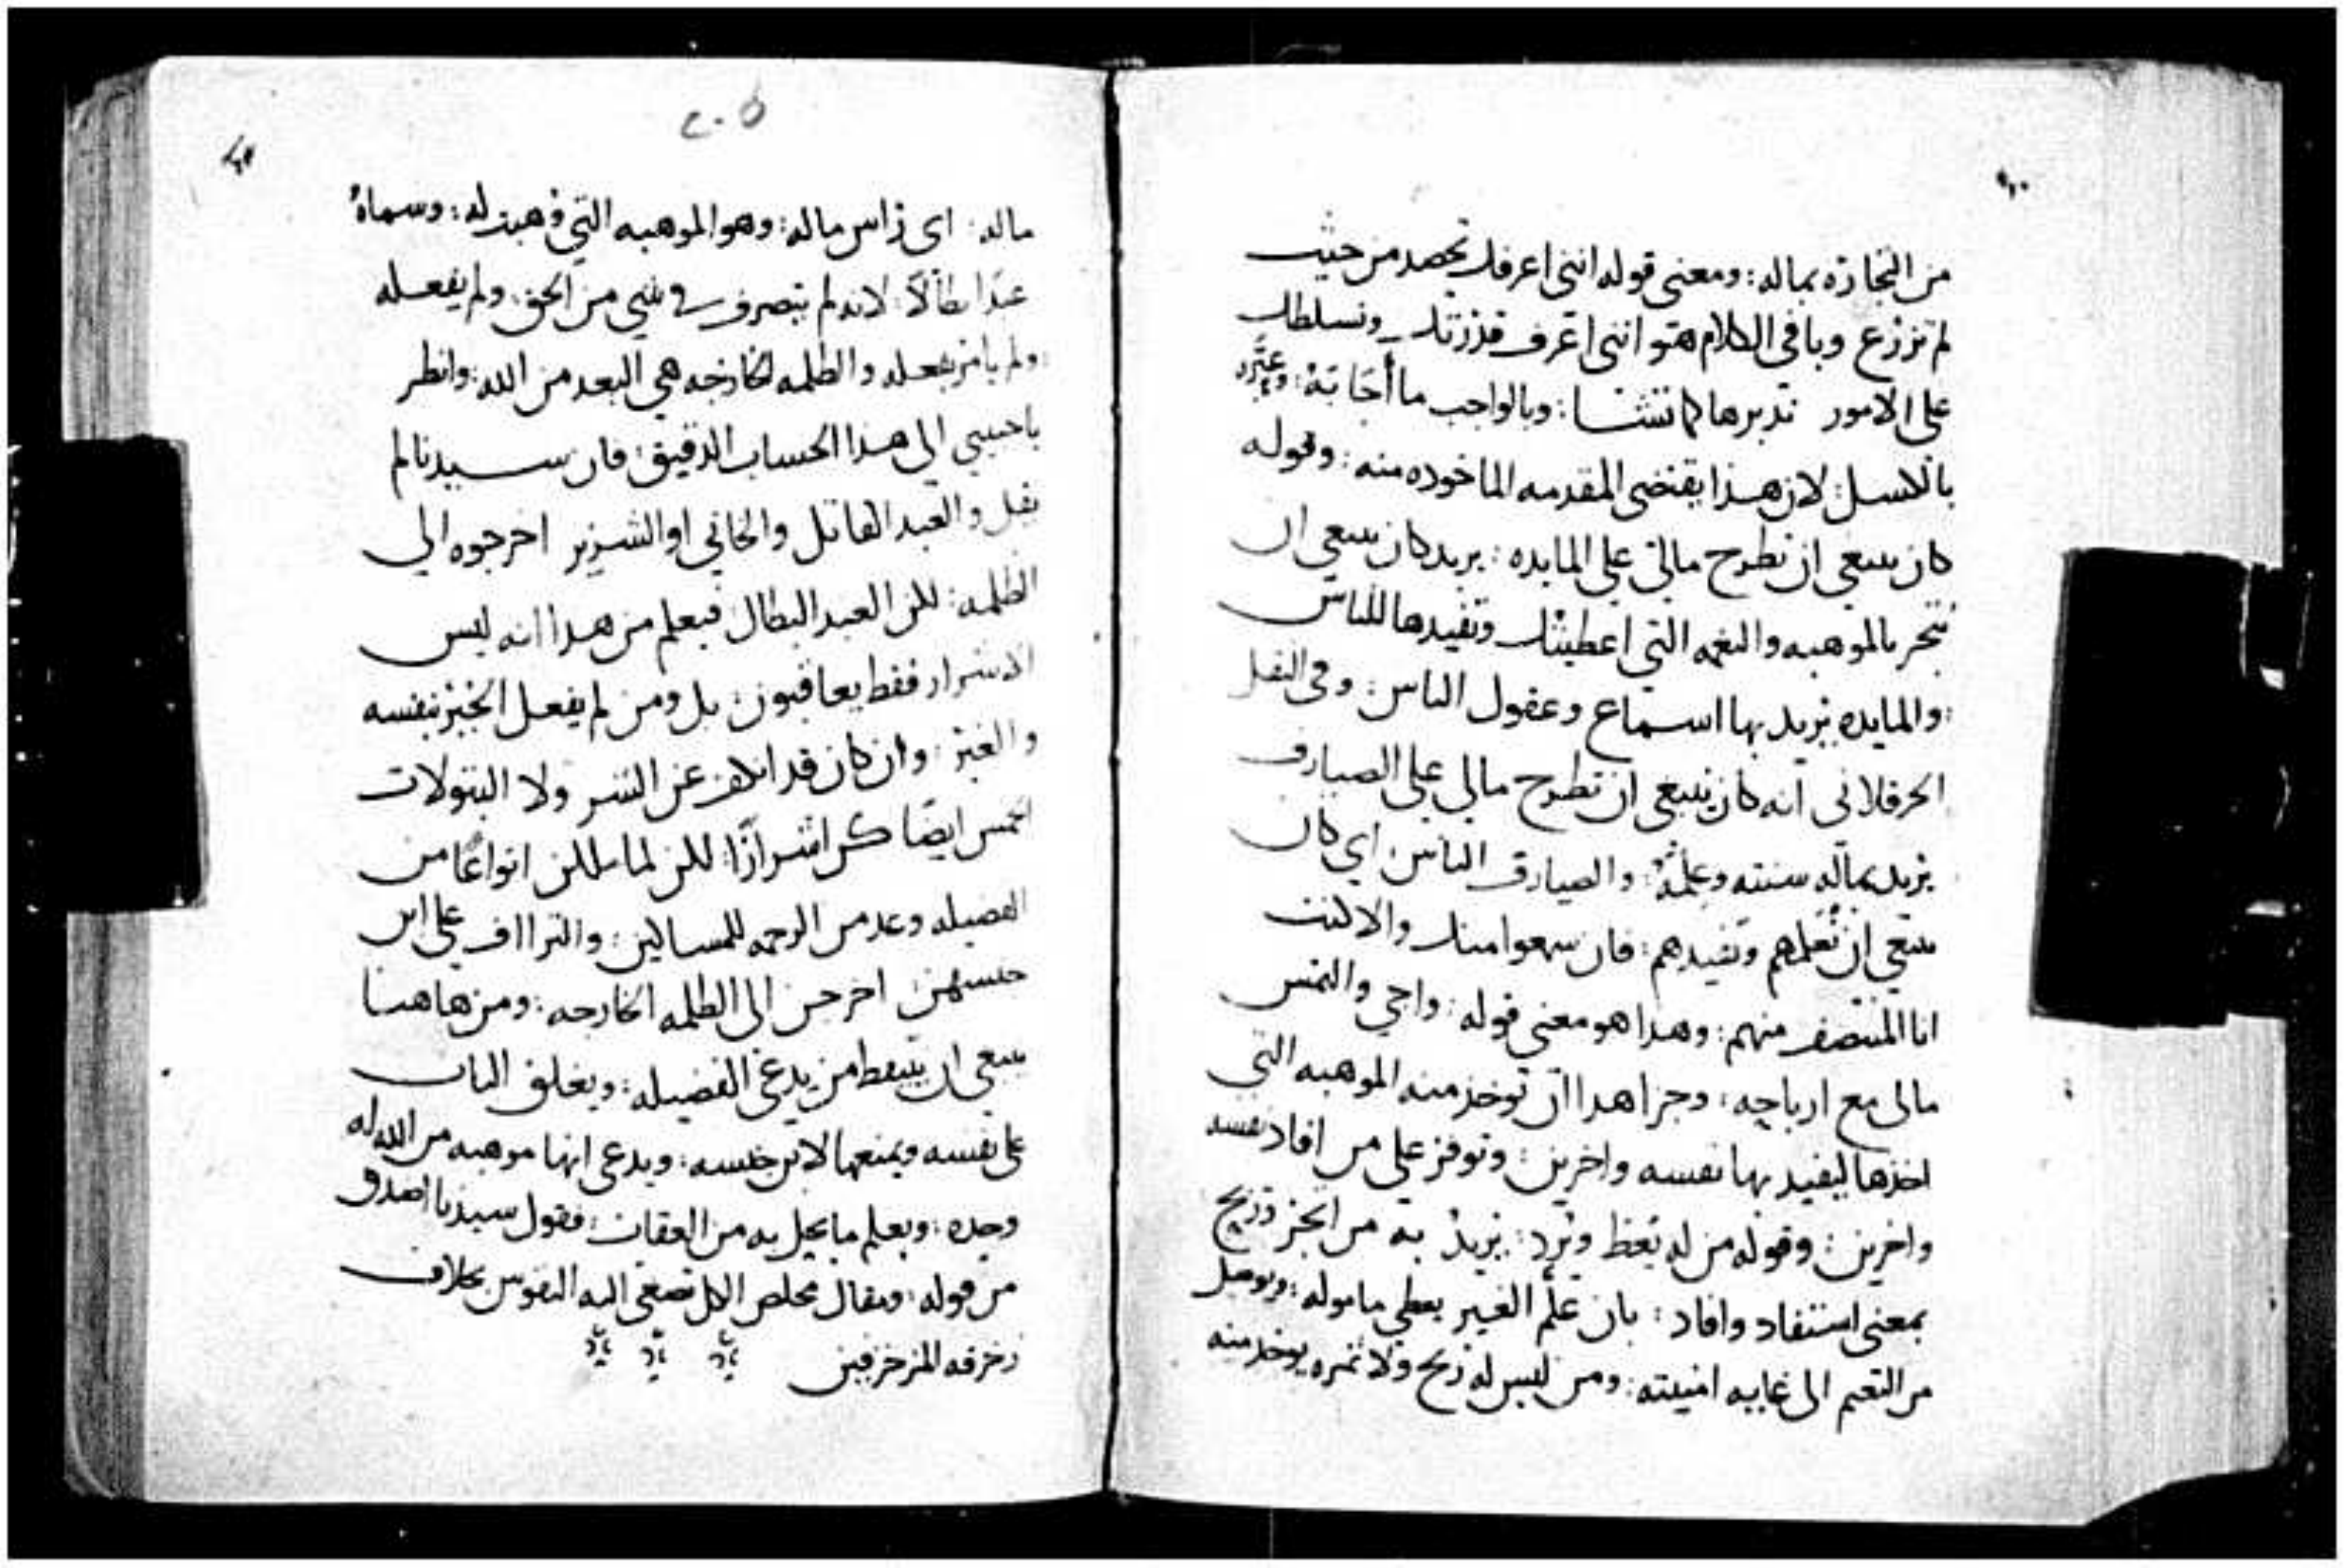 من التجارة بماله: ومعنى قوله انني اعرفك تحصد من حيث
لم تزرع وباقي الكلام هو انني اعرف قدرتك وتسلطك
على الامور تدبرها كما تشا: وبالواجب ما أجابه: وعيّره
بالكسل: لان هذا يقتضي المقدمه الماخوده منه: وقوله
كان ينبغي ان تطرح مالي على المايده: يريد كان ينبغي ان
تتجر بالموهبه والنعمه التي اعطيتك وتفيدها للناس
: والمايده يريد بها اسماع وعقول الناس: وفي النقل
الحرقلاني أنه كان ينبغي ان تطرح مالي على الصيارف
يريد بماله سنته وعلمه: والصيارف الناس: اي كان
ينبغي ان تعلمهم وتفيدهم: فان سمعوا منك والا كنت
انا المنتصف منهم: وهذا هو معنى قوله: واجي والتمس
مالي مع ارباحه: وجزا هدا ان توخذ منه الموهبه التي
اخذها ليفيد بها نفسه واخرين: وتوفر على من افاد نفسه
واخرين: وقوله من له يعط ويزد: يريد به من اتجر وربح
بمعنى استفاد وافاد: بان علّم الغير يعطي ماموله: ويوصل
من النعيم الى غايه امنيته: ومن ليس له ربح ولا ثمره يوخد منه
ماله: اى راس ماله: وهو الموهبه التي وهبت له: وسماهُ
عبدًا بطالاً: لانه لم يتصرف في شي من الحق: ولم يفعله
: ولم يامر بفعله والظلمه الخارجه هي البعد من الله: وانظر
يا حبيبي الى هذا الحساب الدقيق: فان سيدنا لم
يقل والعبد القاتل والخاني او الشرير اخرجوه الى
الظلمه: لكن العبد البطال فيعلم من هدا انه ليس
الاشرار فقط يعاقبون: بل ومن لم يفعل الخير بنفسه
والغير: وان كان قد انكف عن الشر ولا البتولات
الخمس ايضًا كن اشرارًا: لكن لما بطلن انواعًا من
الفضيله وعدمن الرحمه للمساكين: والتراأف على ابن
جنسهن اخرجن الى الظلمه الخارجه: ومن هاهنا
ينبغي ان يتيقظ من يدعي الفضيله: ويغلق الباب
على نفسه ويمنعها لابن جنسه: ويدعي انها موهبه من الله له
وحده: ويعلم ما يحل به من العقاب: فقول سيدنا اصدق
من قوله: ومقال مخلص الكل تصغي اليه النفوس بخلاف
زخرفه المزخرفين